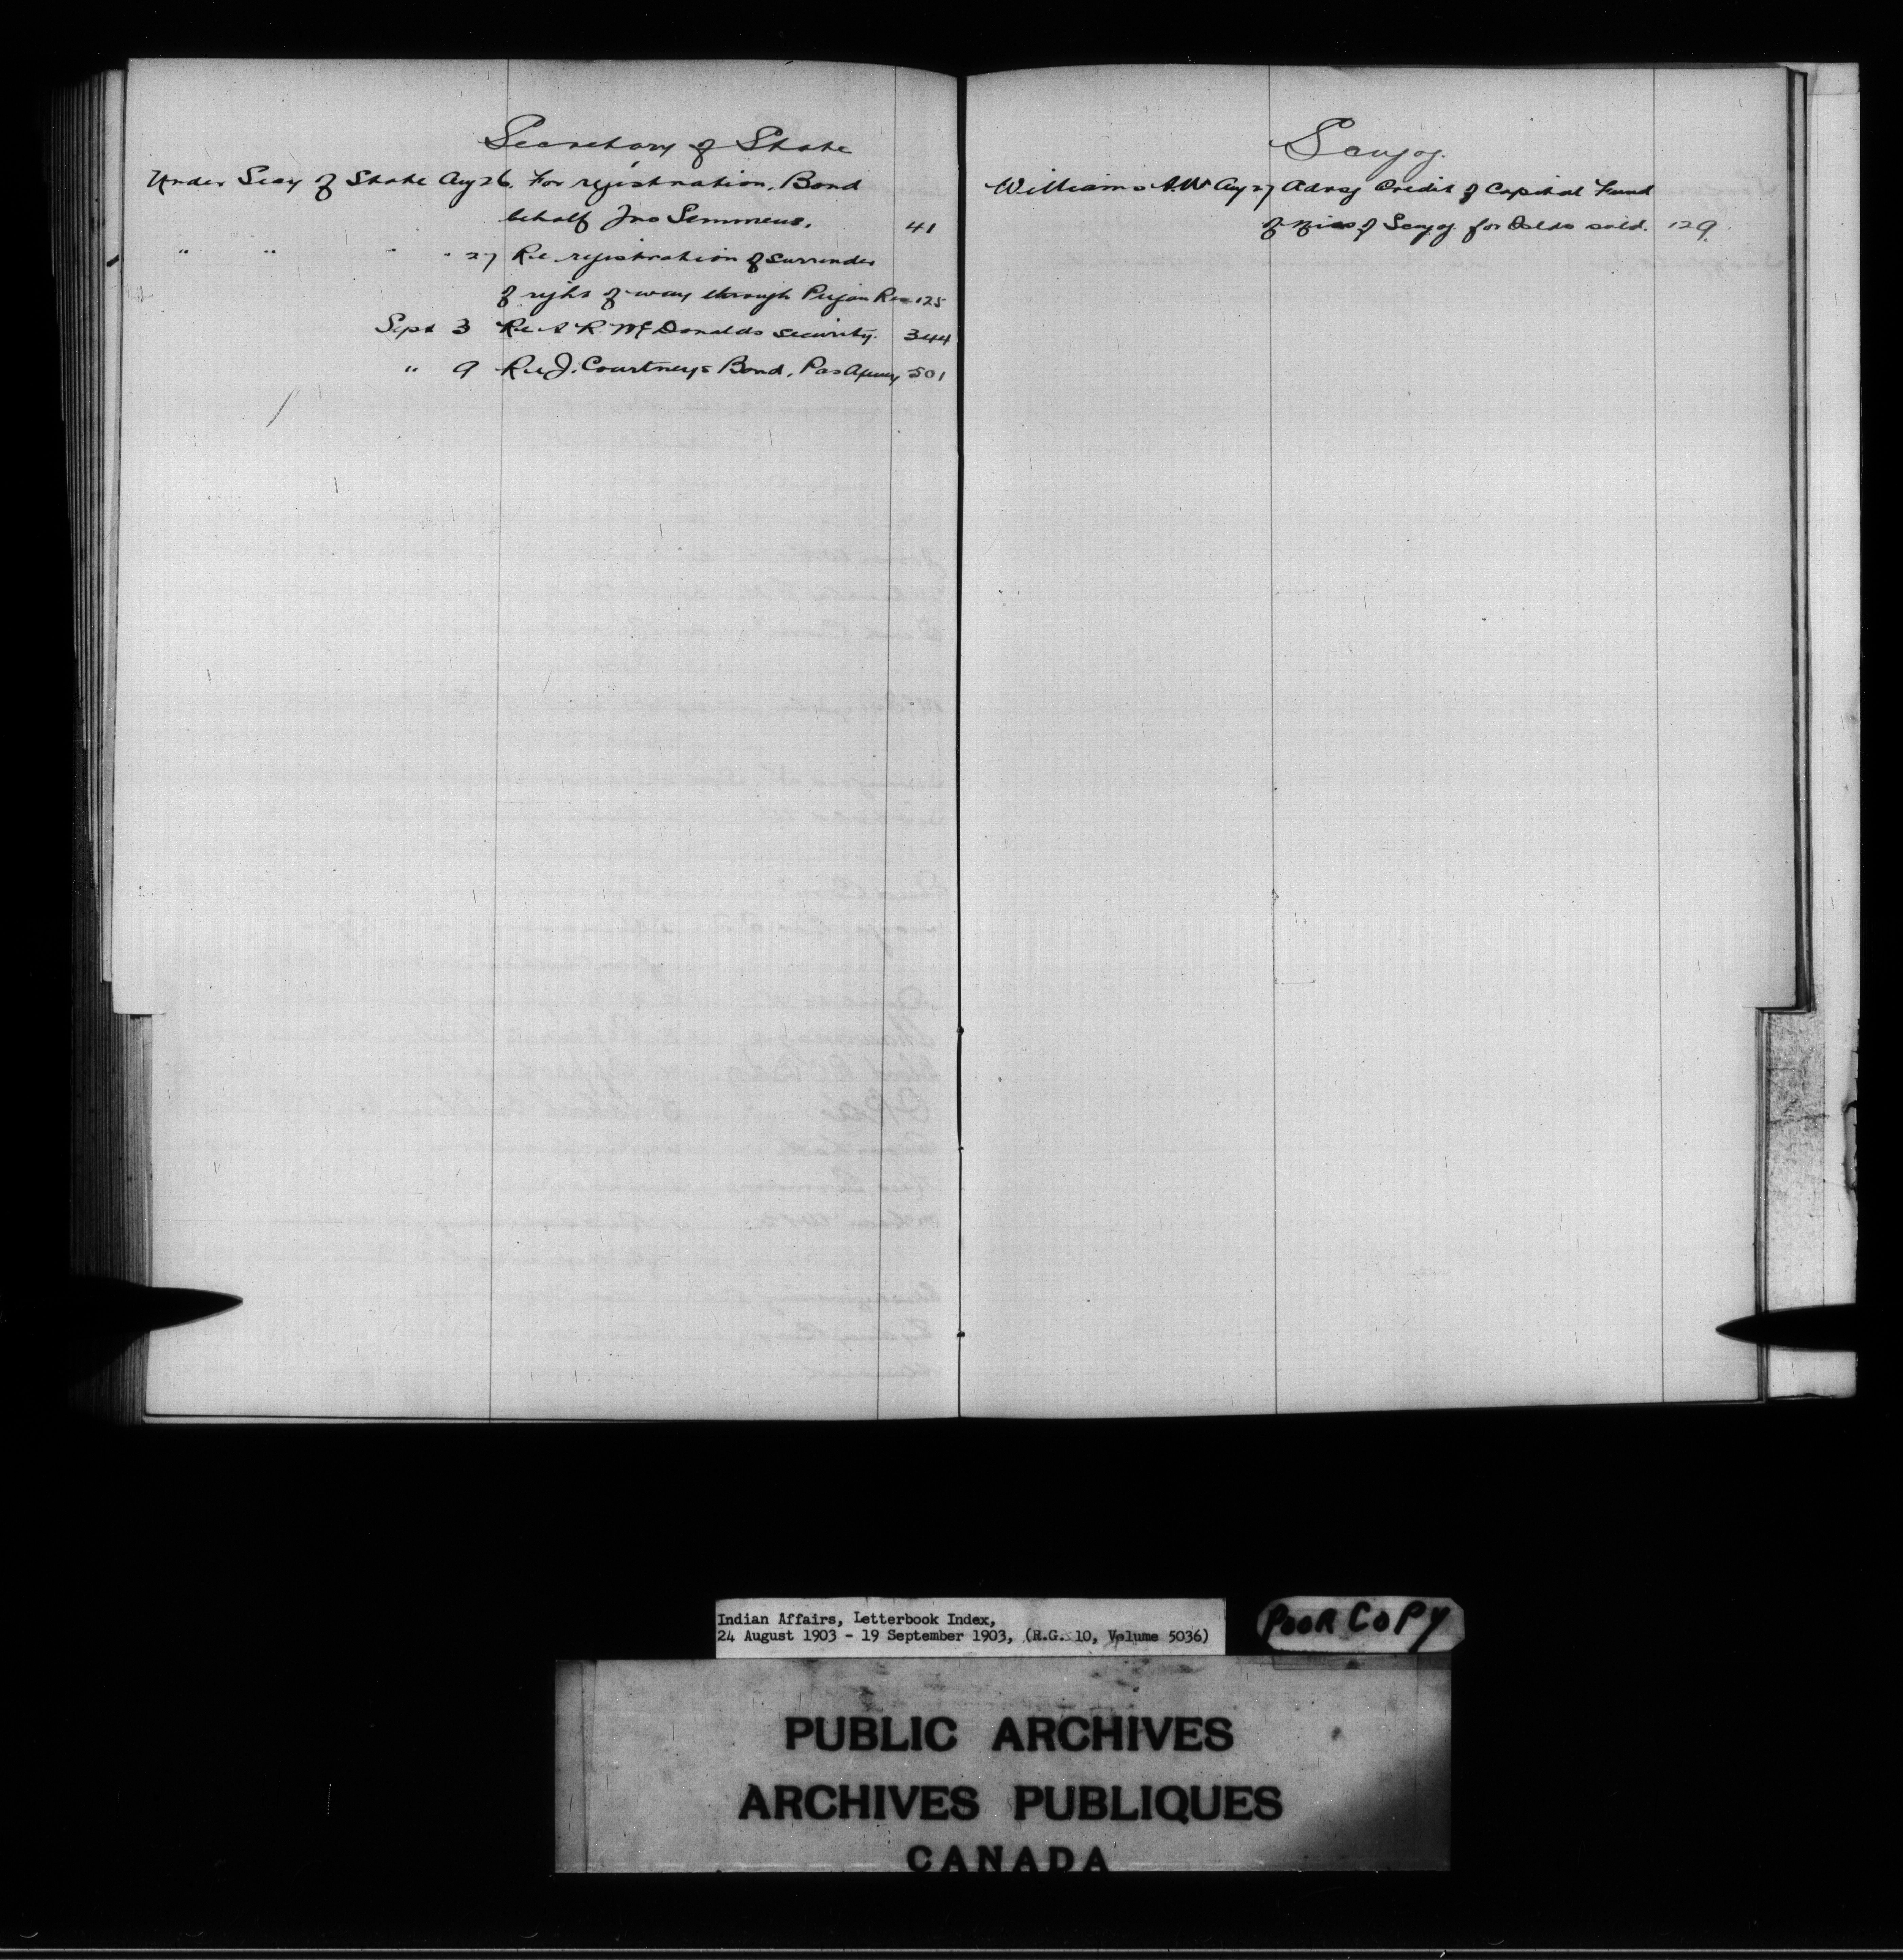 Secretary of State
Under Secy of State Aug 26. For registration, Bond
behalf Jno Semmens. 41
" " " " 27 Re registration of surrender
of right of way through Res 125
Sept 3 Re A R McDonalds security. 344
" 9 Re J. Courtneys Bond. Pas Agency 501
Scugog.
Williams A.W Aug 27 Advsg Credit of Capital Fund
of Miss of Scugog for Islds sold. 129.
Indian Affairs, Letterbook Index,
24 August 1903 - 19 September 1903, (R.G. 10, Volume 5036)
POOR COPY
PUBLIC ARCHIVES
ARCHIVES PUBLIQUES
CANADA